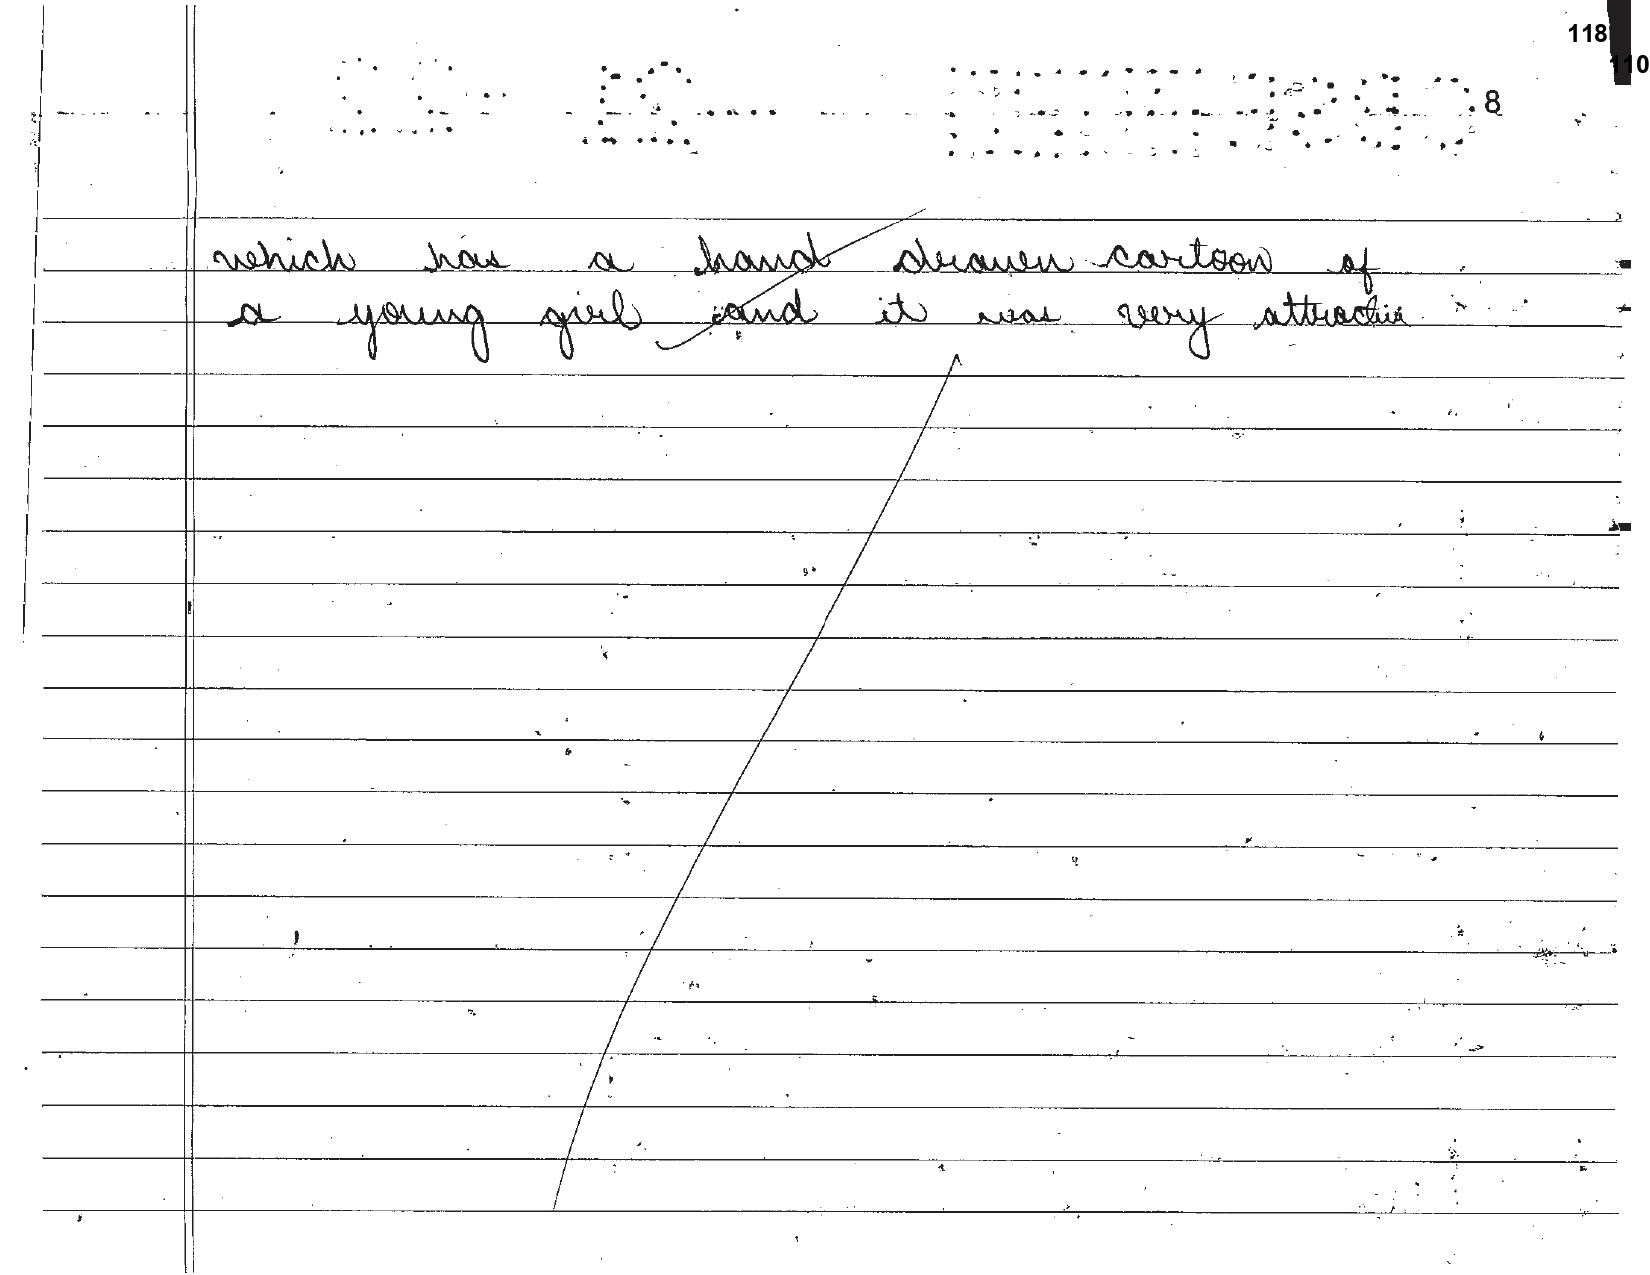 118
110
8
which has a hand drawen cartoon of
a young girl and it was very attractive